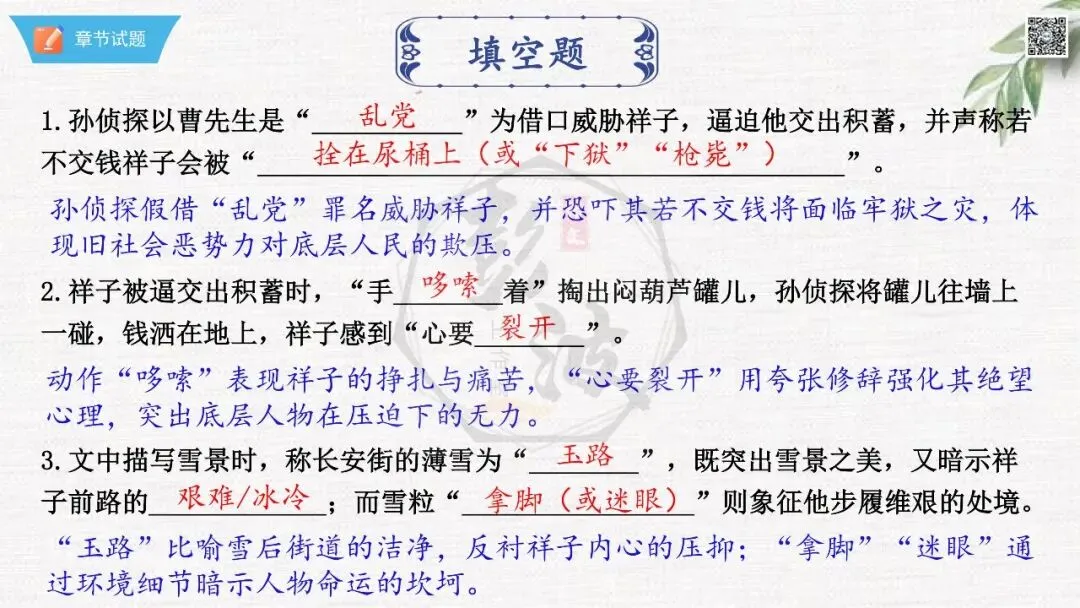 章节试题
填空题
1.孙侦探以曹先生是“乱党”为借口威胁祥子，逼迫他交出积蓄，并声称若
不交钱祥子会被“拴在尿桶上（或“下狱”“枪毙”）”。
孙侦探假借“乱党”罪名威胁祥子，并恐吓其若不交钱将面临牢狱之灾，体
现旧社会恶势力对底层人民的欺压。
2.祥子被逼交出积蓄时，“手哆嗦着”掏出闷葫芦罐儿，孙侦探将罐儿往墙上
一碰，钱洒在地上，祥子感到“心要裂开”。
动作“哆嗦”表现祥子的挣扎与痛苦，“心要裂开”用夸张修辞强化其绝望
心理，突出底层人物在压迫下的无力。
3.文中描写雪景时，称长安街的薄雪为“玉路”，既突出雪景之美，又暗示祥
子前路的艰难/冰冷；而雪粒“拿脚（或迷眼）”则象征他步履维艰的处境。
“玉路”比喻雪后街道的洁净，反衬祥子内心的压抑；“拿脚”“迷眼”通
过环境细节暗示人物命运的坎坷。